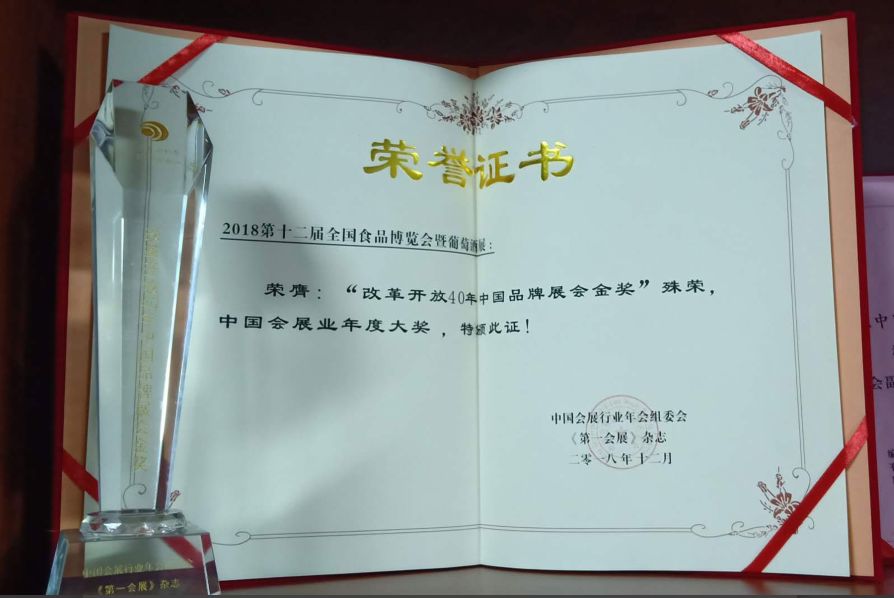 荣誉证书
2018第十二届全国食品博览会暨葡萄酒展：
荣膺：“改革开放40年中国品牌展会金奖”殊荣，
中国会展业年度大奖，特颁此证！
中国会展行业年会组委会
《第一会展》杂志
二零一八年十二月
中国品牌展会金奖
中国会展行业年会
《第一会展》杂志